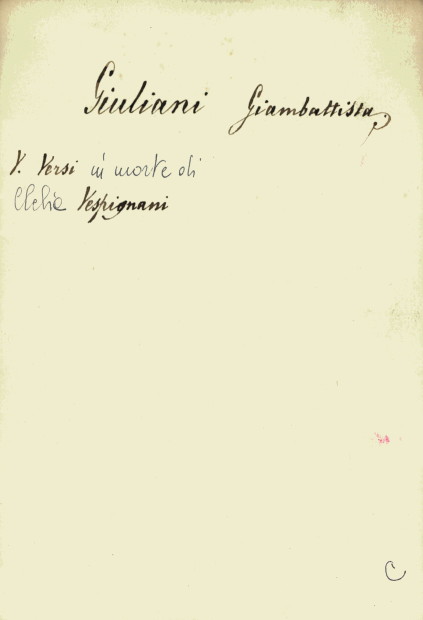 Giuliani Giambattista
V. Versi in morte di
Clelia Vespignani
C